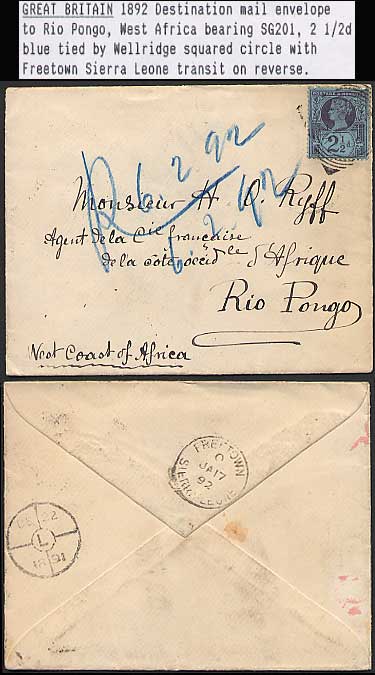 GREAT BRITAIN 1892 Destination mail envelope
to Rio Pongo, West Africa bearing SG201, 2 1/2d
blue tied by Wellridge squared circle with
Freetown Sierra Leone transit on reverse.
POSTAGE & REVENUE
2½d
R 6. 2 92
Monsieur H. O. Ryff
Agent de la Cie française
de la côte occidle d'Afrique
Rio Pongo
West Coast of Africa
FREETOWN
C
JA 17
92
SIERRA LEONE
DE 22
L
18 91